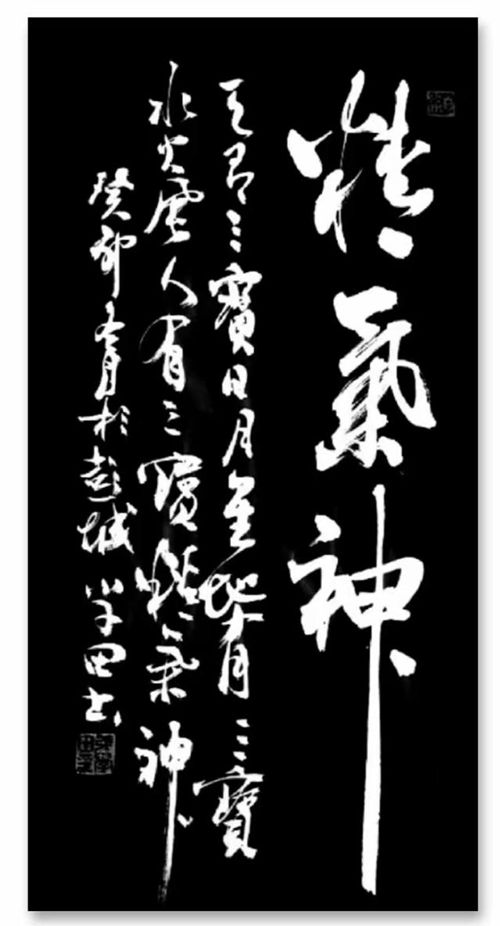 精氣神
天有三寶日月星地有三寶
水火風人有三寶精氣神
癸卯春月於彭城學田書